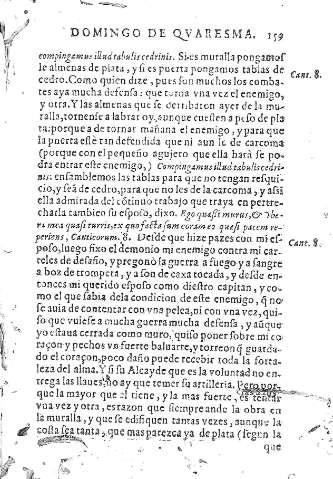 DOMINGO DE QVARESMA. 159
compingamus illud tabulis cedrinis. Si es muralla pongamosle
almenas de plata, y si es puerta pongamos tablas de
cedro. Como quien dize, pues son muchos los combates
aya mucha defensa: que torna vna vez el enemigo,
y otra. Y las almenas que se derribaron ayer de la muralla,
tornense a labrar oy, aunque cuesten a peso de plata:
porque a de tornar mañana el enemigo, y para que
la puerta esté tan defendida que ni aun le de carcoma
(porque con el pequeño agujero que ella hará se podra
entrar este enemigo,) Compingamus illud tabulis cedrinis:
ensamblemos las tablas para que no tengan resquicio,
y seá de cedro, para que no les de la carcoma, y assi
ella admirada del cōtinuo trabajo que traya en pertrecharla
tambien su esposo, dixo. Ego quasi murus, & vbera
mea quasi turris, ex quo facta sum coram eo quasi pacem reperiens,
Canticorum. 8. Desde que hize pazes con mi esposo,
luego fixo el demonio mi enemigo contra mi carteles
de desafio, y pregonò la guerra a fuego y a sangre
a boz de trompeta, y a son de caxa tocada, y desde entonces
mi querido esposo como diestro capitan, y como
el que sabia dela condicion de este enemigo, q̄ no
se auia de contentar con vna pelea, ni con vna vez, quiso
que vuiesse a mucha guerra mucha defensa, y aūque
yo estaua cerrada como muro, quiso poner sobre mi coraçon
y pechos vn fuerte baluarte, y torreon q̄ guardado
el coraçon, poco daño puede recebir toda la fortaleza
del alma. Y si su Alcayde que es la voluntad no entrega
las llaues, no ay que temer su artilleria. Pero porque
la mayor que el tiene, y la mas fuerte, es tentar
vna vez y otra, es razon que siempre ande la obra en
la muralla, y que se edifiquen tantas vezes, aunque la
costa sea tanta, que mas parezca ya de plata (segun la
que
Cant. 8.
Cant. 8.